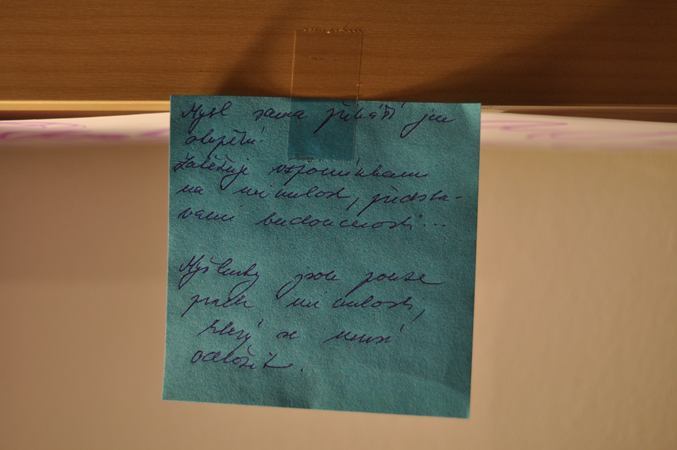 Mysl sama přináší jen
utrpení.
Zatěžuje vzpomínkami
na minulost, předsta-
vami budoucnosti...
Myšlenky jsou pouze
prach minulosti,
který se musí
odložit.